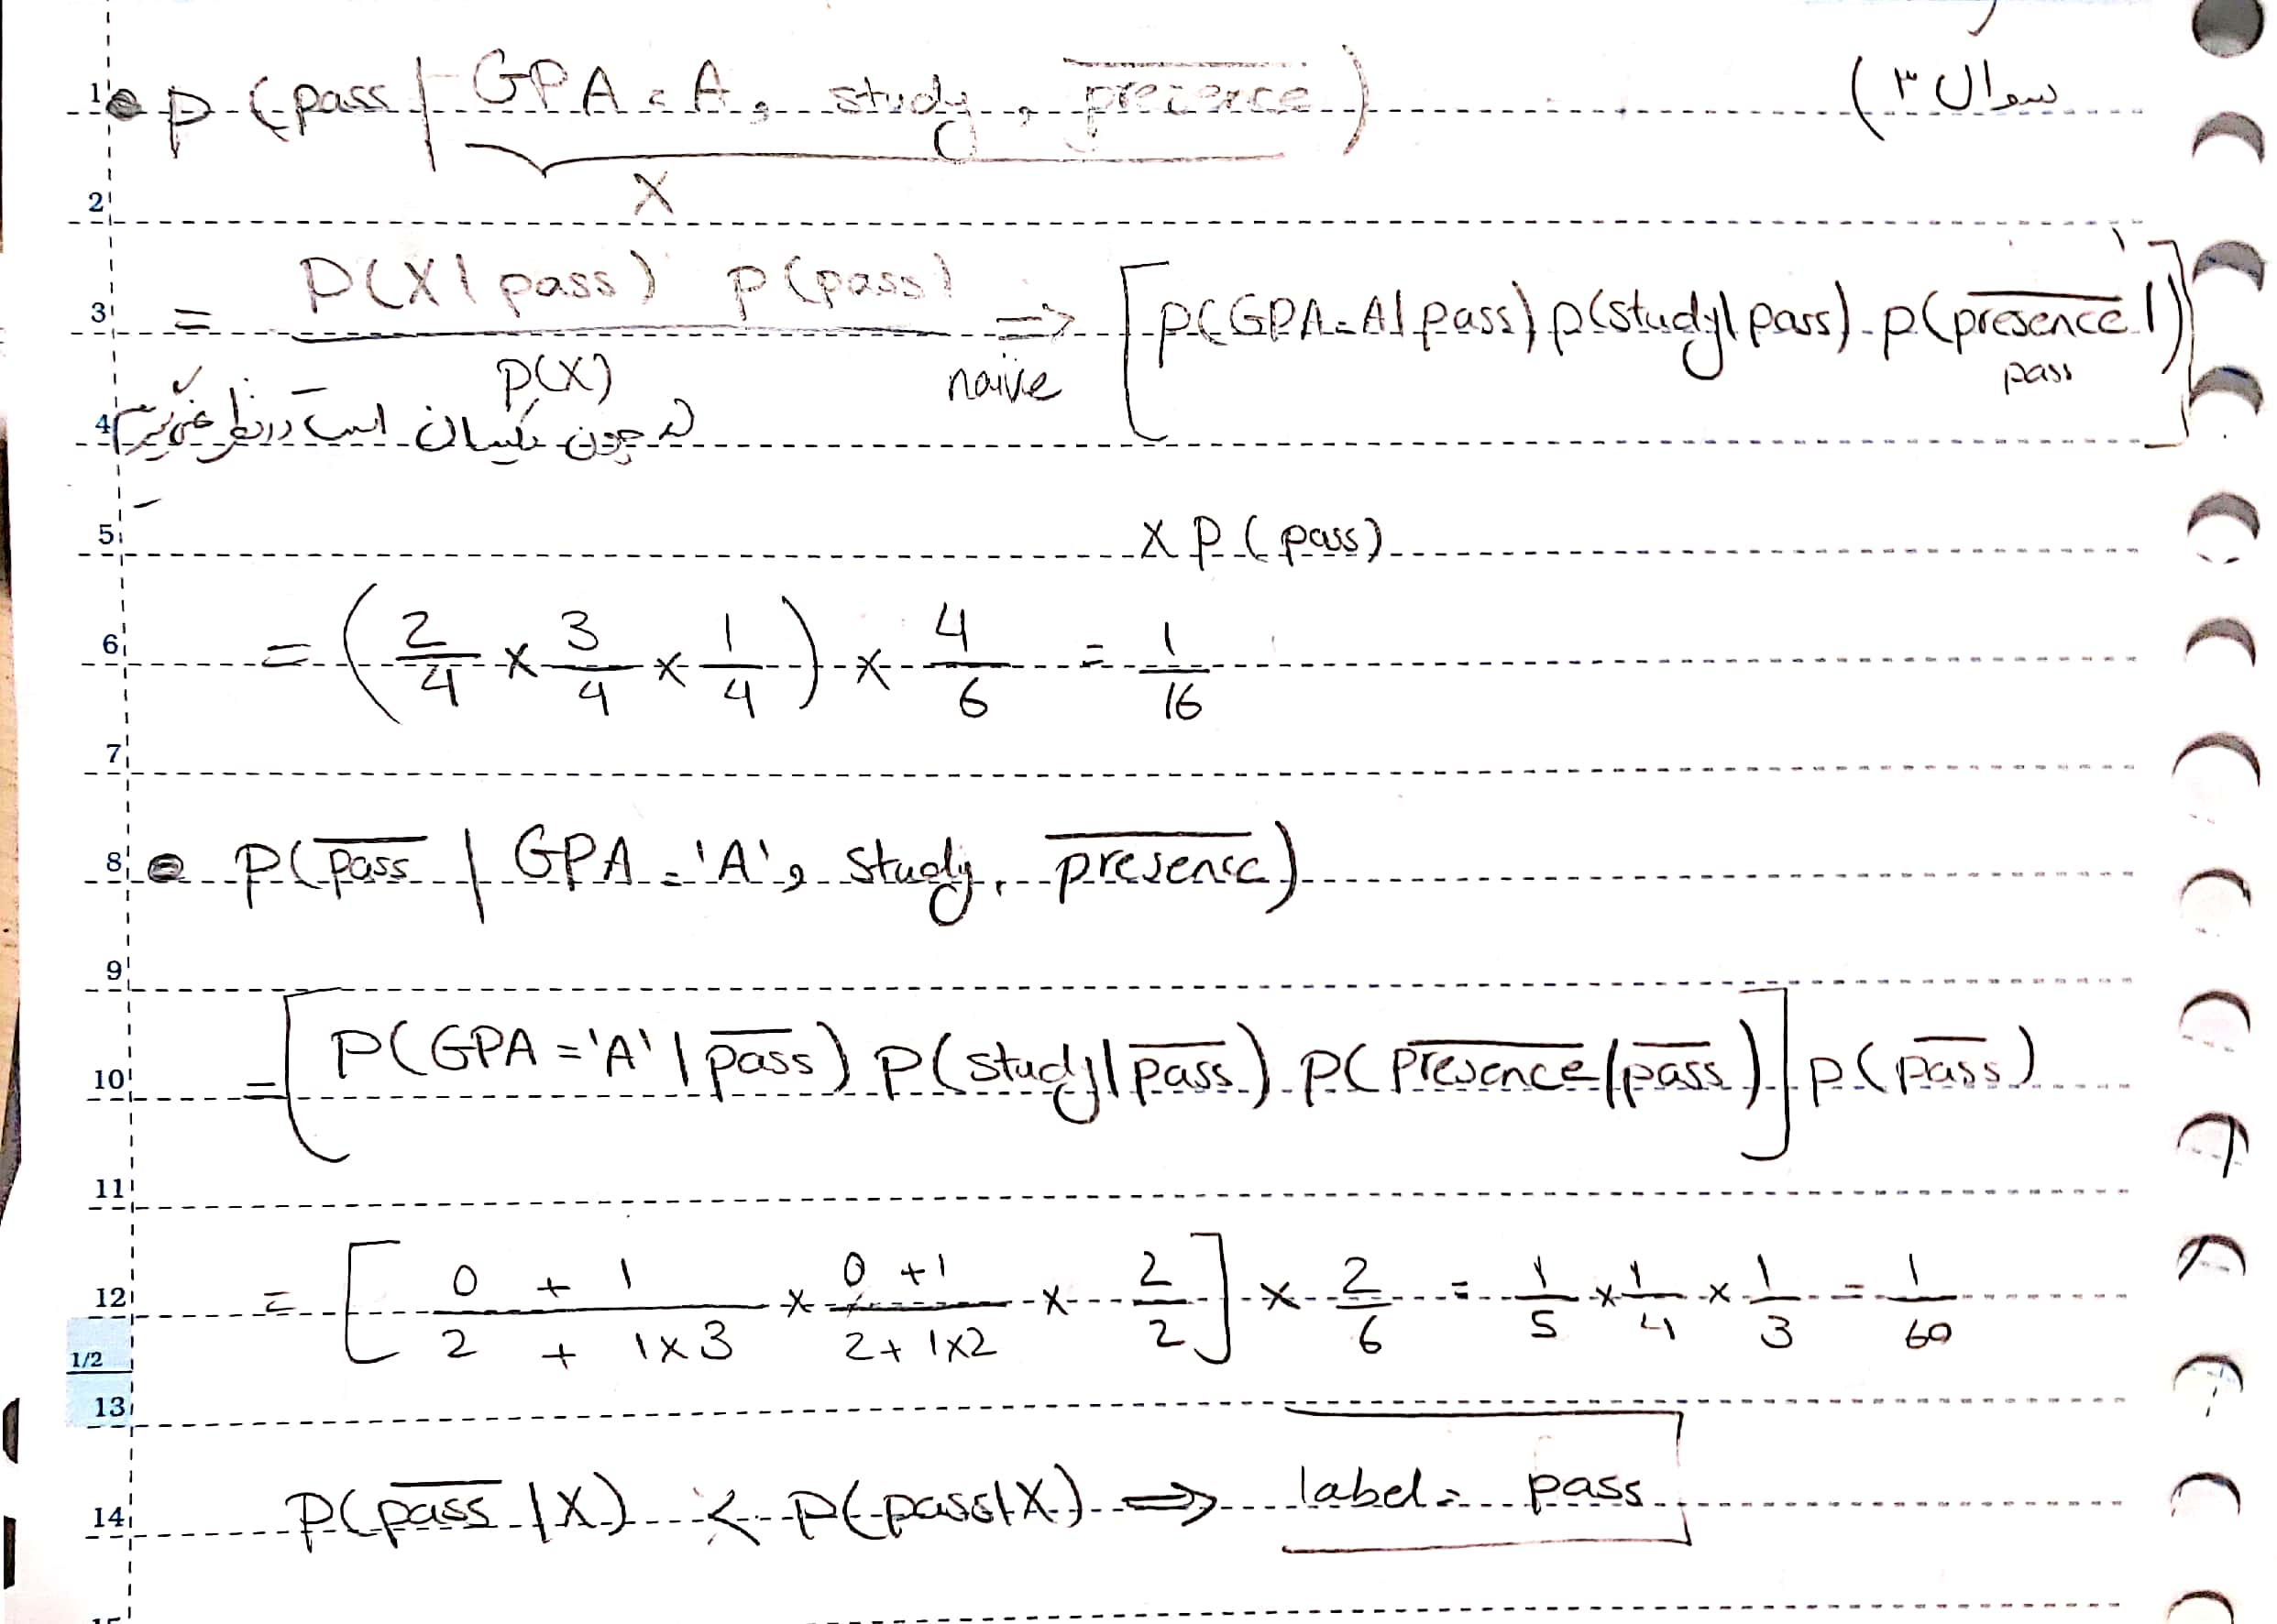 سوال ۳)
1 • p (pass | GPA = A, study, \overline{presence})
X
2
3 = \frac{P(X | pass) p(pass)}{P(X)} ⇒ naive [p(GPA = A | pass) p(study | pass) . p(\overline{presence} | pass)]
4 چون یکسان است در نظر نمی‌گیریم
5 × P (pass)
6 = (\frac{2}{4} × \frac{3}{4} × \frac{1}{4}) × \frac{4}{6} = \frac{1}{16}
7
8 • P(\overline{pass} | GPA = 'A', study, \overline{presence})
9
10 = [P(GPA = 'A' | \overline{pass}) P(study | \overline{pass}) . P(\overline{presence} | \overline{pass})] p(\overline{pass})
11
12 = [\frac{0 + 1}{2 + 1×3} × \frac{0 + 1}{2 + 1×2} × \frac{2}{2}] × \frac{2}{6} = \frac{1}{5} × \frac{1}{4} × \frac{1}{3} = \frac{1}{60}
1/2
13
14 P(\overline{pass} | X) < P(pass | X) ⇒ label = pass